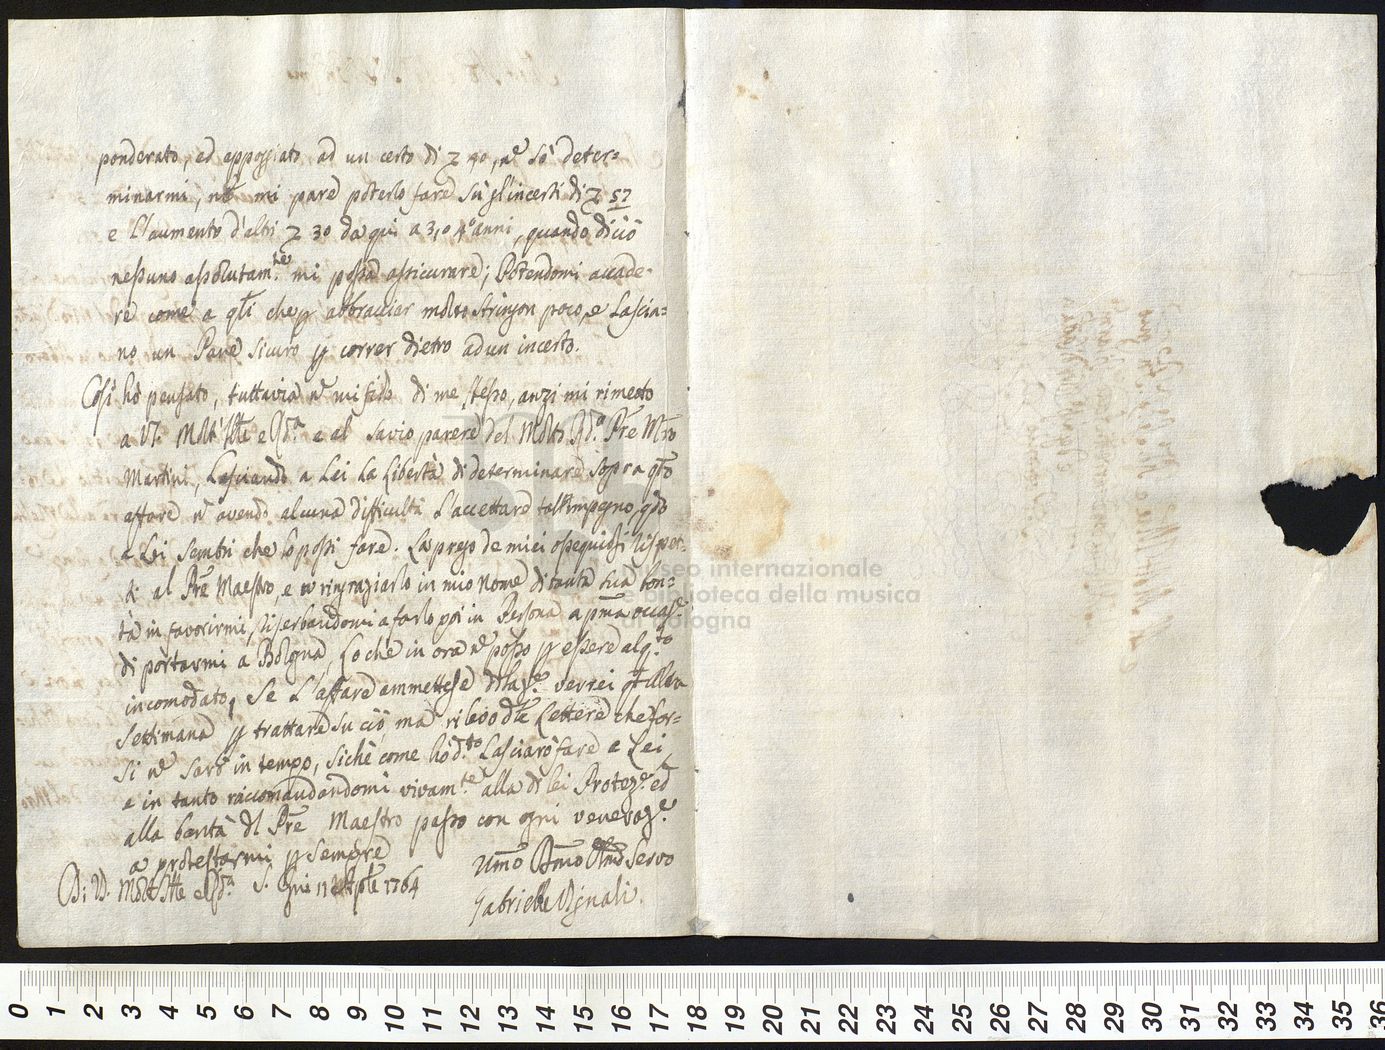 ponderato, ed appoggiato ad un certo di z 40, nè sò deter=
minarmi, nè mi pare poterlo fare sù gl'incerti di z 57
e l'aumento d'altri z 30 da qui a 3, o 4 anni, quando di ciò
nessuno assolutam.te mi possa assicurare; Potendomi accade-
re come a qli che p abbracciar molto stringon poco, e lascia=
no un Pane sicuro p correr dietro ad un incerto.
Così hò pensato, tuttavia nõ mi fido di me stesso, anzi mi rimetto
a V.S. Molt' Illre e Rda e al savio parere del Molto Rdo Pre Mro
Martini, Lasciando a Lei La Libertà di determinare sopra qto
affare nõ avendo alcuna difficultà L'accettare tal Impegno, qdo
a Lei sembri che lo possi fare. La prego de miei ossequiosi rispet-
ti al Pre Maestro, e di ringraziarlo in mio Nome di tanta sua bon=
tà in favorirmi, riserbandomi a farlo poi in Persona a pma occas.e
di portarmi a Bologna, Lo che in ora nõ posso p essere alq.to
incomodato, se L'affare ammettesse dilaz.e verrei
settimana p trattare su ciò, ma rilevo Lettere che for=
si nõ sarò in tempo, sichè come hò d.to Lasciarò fare a Lei,
e in tanto raccomandandomi vivam.te alla di lei Protez.e ed
alla bontà dl Pre Maestro passo con ogni veneraz.e
a protestarmi p sempre
Di V.S. Molt' Illre e Rda S. Gni 11 1764
Umo Dmo Servo
Gabrielle Vignali.
museo internazionale
e biblioteca della musica
di bologna
0 1 2 3 4 5 6 7 8 9 10 11 12 13 14 15 16 17 18 19 20 21 22 23 24 25 26 27 28 29 30 31 32 33 34 35 36